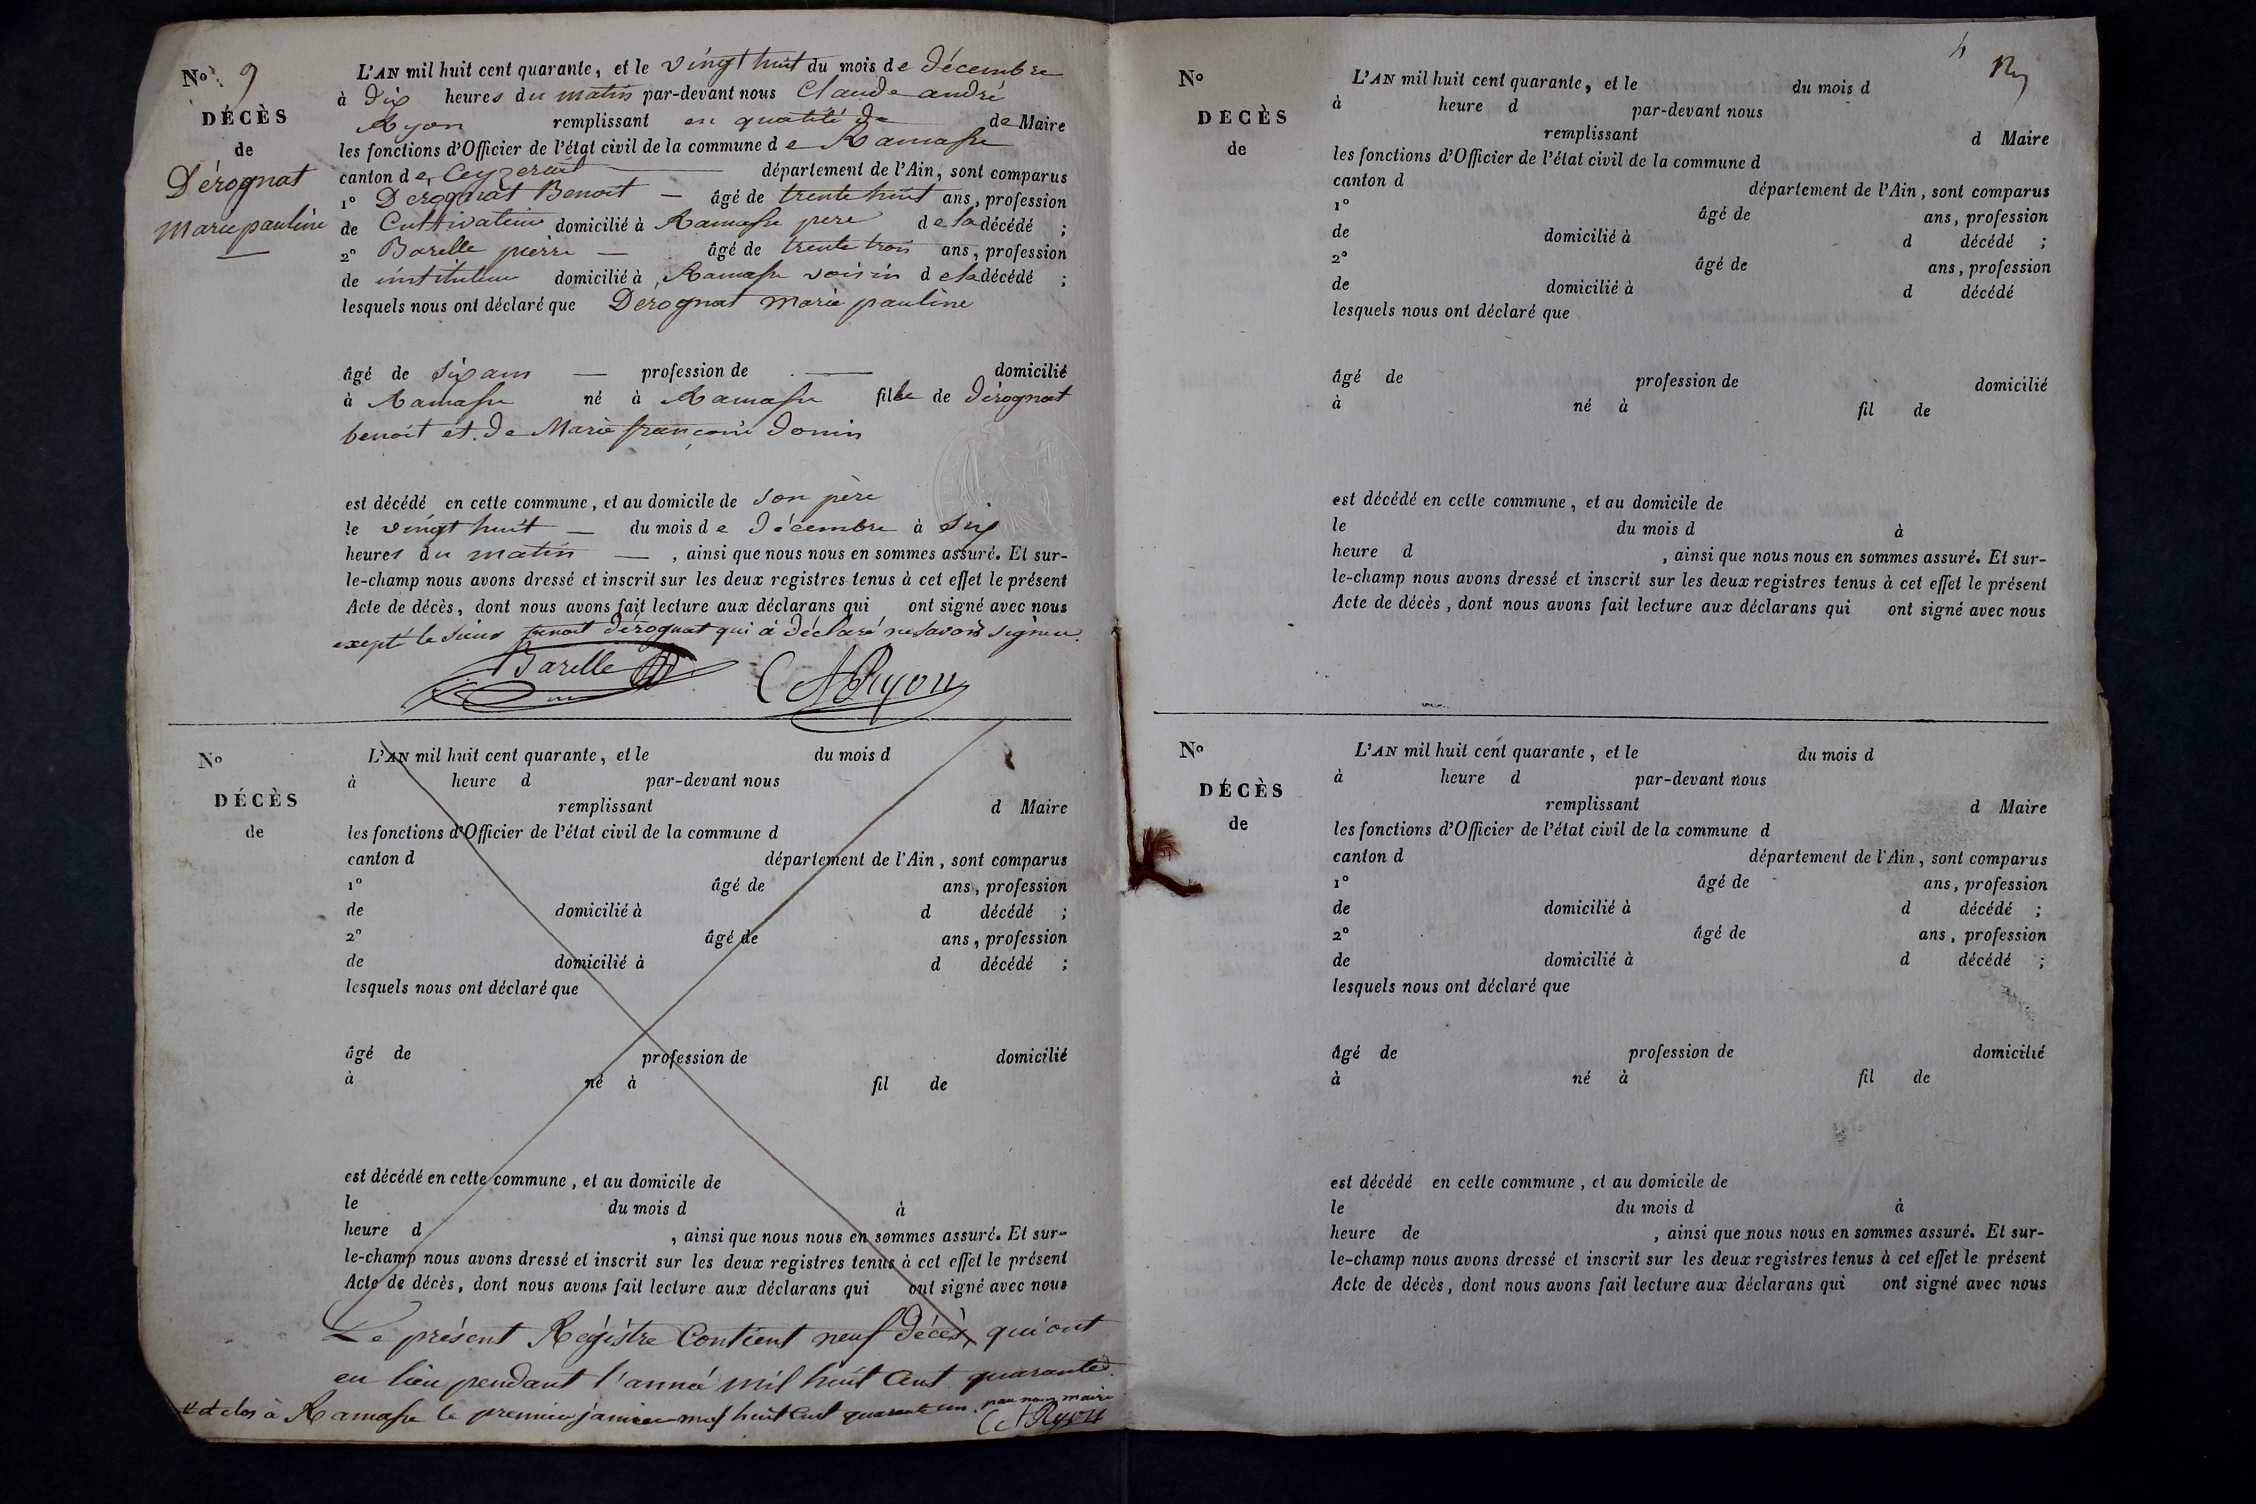 No 9
DÉCÈS
de
Dérognat
marie pauline
L'AN mil huit cent quarante, et le vingt huit du mois de décembre
à dix heures du matin par-devant nous Claude andré
Ryon remplissant en qualité de de Maire
les fonctions d'Officier de l'état civil de la commune de Ramasse
canton de Ceyzeriat département de l'Ain, sont comparus
1° Derognat Benoit — âgé de trente huit ans, profession
de Cultivateur domicilié à Ramasse pere de la décédé ;
2° Barelle pierre — âgé de trente trois ans, profession
de instituteur domicilié à Ramasse voisin de la décédé ;
lesquels nous ont déclaré que Derognat marie pauline
âgé de six ans — profession de — domicilié
à Ramasse né à Ramasse fille de dérognat
benoit et de Marie françoise donin
est décédé en cette commune, et au domicile de son père
le vingt huit — du mois de décembre à six
heures du matin — , ainsi que nous nous en sommes assuré. Et sur-
le-champ nous avons dressé et inscrit sur les deux registres tenus à cet effet le présent
Acte de décès, dont nous avons fait lecture aux déclarans qui ont signé avec nous
exepté le sieur benoit dérognat qui a déclaré ne savoir signer.
Barelle CARyon
No
DÉCÈS
de
L'AN mil huit cent quarante, et le du mois d
à heure d par-devant nous
remplissant d Maire
les fonctions d'Officier de l'état civil de la commune d
canton d département de l'Ain, sont comparus
1° âgé de ans, profession
de domicilié à d décédé ;
2° âgé de ans, profession
de domicilié à d décédé ;
lesquels nous ont déclaré que
âgé de profession de domicilié
à né à fil de
est décédé en cette commune, et au domicile de
le du mois d à
heure d , ainsi que nous nous en sommes assuré. Et sur-
le-champ nous avons dressé et inscrit sur les deux registres tenus à cet effet le présent
Acte de décès, dont nous avons fait lecture aux déclarans qui ont signé avec nous
Le présent Registre Contient neuf décès, qui ont
eu lieu pendant l'année mil huit Cent quarante.
et clos à Ramasse le premier janvier mil huit Cent quarante un. par nous maire
CARyon
4
No
DECÈS
de
L'AN mil huit cent quarante, et le du mois d
à heure d par-devant nous
remplissant d Maire
les fonctions d'Officier de l'état civil de la commune d
canton d département de l'Ain, sont comparus
1° âgé de ans, profession
de domicilié à d décédé ;
2° âgé de ans, profession
de domicilié à d décédé
lesquels nous ont déclaré que
âgé de profession de domicilié
à né à fil de
est décédé en cette commune, et au domicile de
le du mois d à
heure d , ainsi que nous nous en sommes assuré. Et sur-
le-champ nous avons dressé et inscrit sur les deux registres tenus à cet effet le présent
Acte de décès, dont nous avons fait lecture aux déclarans qui ont signé avec nous
No
DÉCÈS
de
L'AN mil huit cent quarante, et le du mois d
à heure d par-devant nous
remplissant d Maire
les fonctions d'Officier de l'état civil de la commune d
canton d département de l'Ain, sont comparus
1° âgé de ans, profession
de domicilié à d décédé ;
2° âgé de ans, profession
de domicilié à d décédé ;
lesquels nous ont déclaré que
âgé de profession de domicilié
à né à fil de
est décédé en cette commune, et au domicile de
le du mois d à
heure de , ainsi que nous nous en sommes assuré. Et sur-
le-champ nous avons dressé et inscrit sur les deux registres tenus à cet effet le présent
Acte de décès, dont nous avons fait lecture aux déclarans qui ont signé avec nous